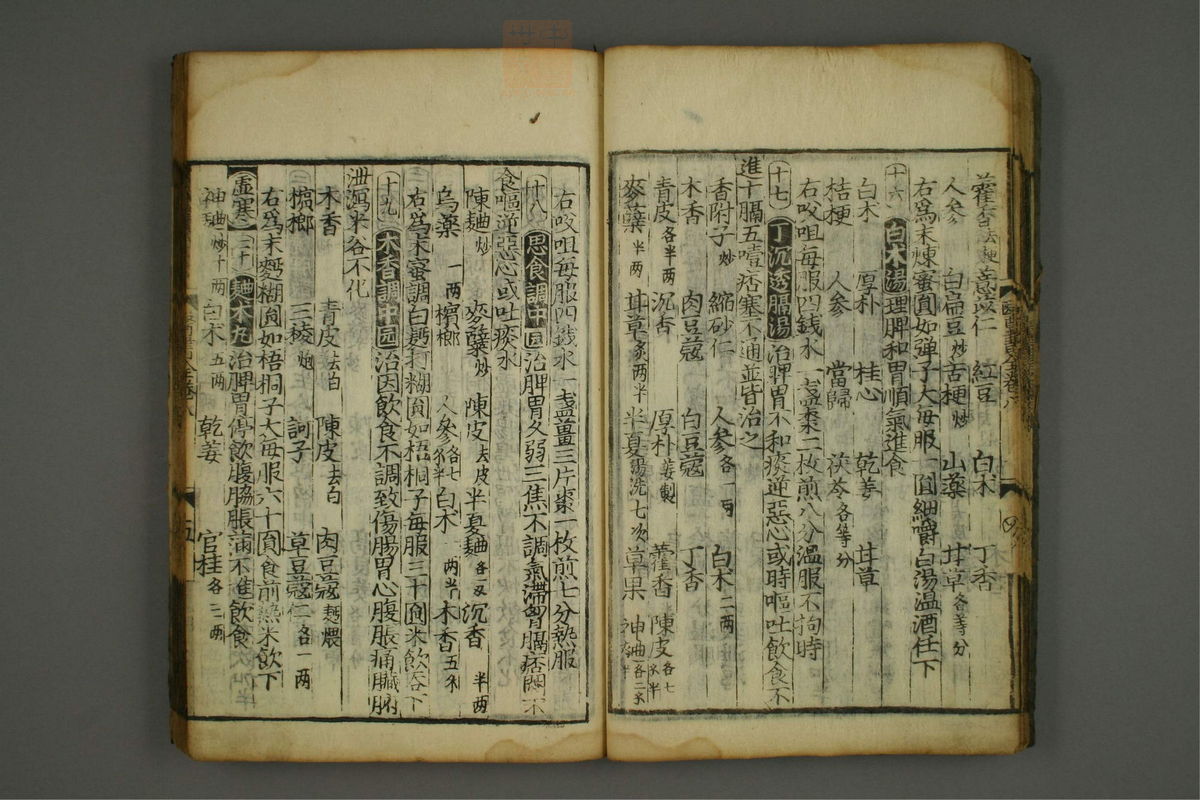 藿香去梗 薏苡仁 紅豆 白术 丁香
人參 白扁豆炒 吉梗炒 山藥 甘草各等分
右為末煉蜜圓如弹子大每服一圓細嚼白湯温酒任下
十六 白术湯 理脾和胃順氣進食
白术 厚朴 桂心 乾姜 甘草
桔梗 人參 當歸 茯苓各等分
右㕮咀每服四錢水一盞棗二枚煎八分温服不拘時
十七 丁沉透膈湯 治脾胃不和痰逆惡心或時嘔吐飲食不
進十膈五噎痞塞不通並皆治之
香附子炒 縮砂仁 人參各一两 白术二两
木香 肉豆蔻 白豆蔻 丁香
青皮各半两 沉香 厚朴姜製 藿香 陳皮各七
麥糵半两 甘草炙两半 半夏湯洗七次 草果 神曲
右㕮咀每服四錢水一盞薑三片棗一枚煎七分熱服
十八 思食調中圓 治脾胃久弱三焦不調氣滯胷膈痞悶不
食嘔逆惡心或吐痰水
陳麯炒 麥糵炒 陳皮去皮 半夏麯各一两 沉香半两
烏藥一两 檳榔 人參各七 白术一两半 木香
右為末蜜調白麪打糊圓如梧桐子每服三十圓米飲吞下
十九 木香調中圓 治因飲食不調致傷腸胃心腹脹痛臟腑
泄瀉米谷不化
木香 青皮去白 陳皮去白 肉豆蔻麪煨
檳榔 三稜炮 訶子 草豆蔻仁各一两
右為末麪糊圓如梧桐子大每服六十圓食前熱米飲下
虛寒 二十 麯术丸 治脾胃停飲腹脇脹滿不進飲食
神麯炒十两 白术五两 乾姜 官桂各三两
五